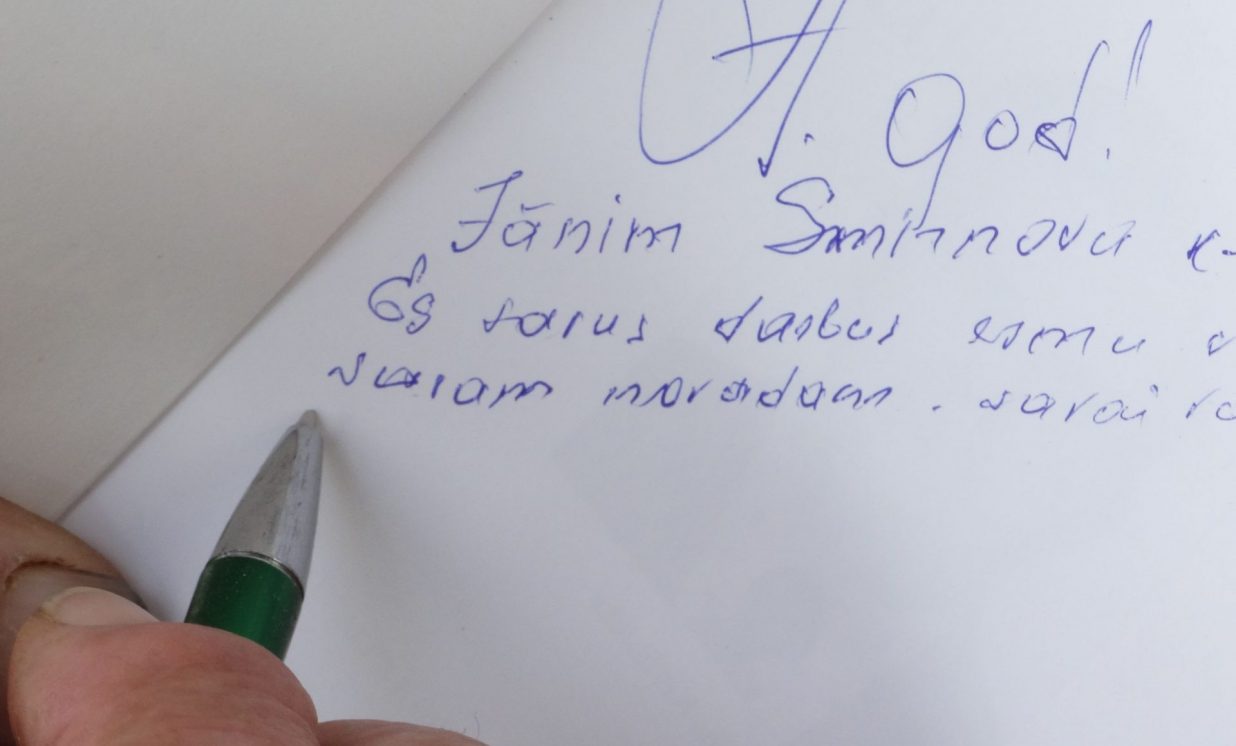 A. god!
Jānim Smirnova k-
Es savus darbus esmu
savam novadam. savai